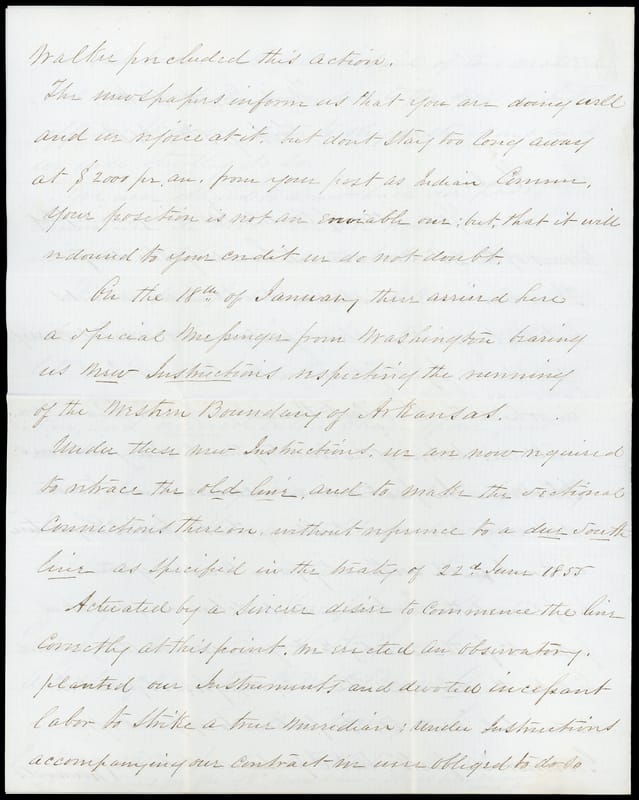 Walker precluded this action.
The newspapers inform us that you are doing well
and we rejoice at it. but dont stay too long away
at $2000 pr. an. from your post as Indian Commr.
Your position is not an enviable one; but, that it will
redound to your credit we do not doubt.
On the 18th of January, there arrived here
a special Messenger from Washington bearing
us new Instructions respecting the running
of the Western Boundary of Arkansas.
Under these new Instructions, we are now required
to retrace the old line, and to make the sectional
Connections thereon, without reference to a due South
line as specified in the treaty of 22d June 1855
Actuated by a sincere desire to commence the line
correctly at this point. we erected an observatory,
planted our Instruments and devoted incessant
labor to strike a true Meridian; Under Instructions
accompanying our contract we were obliged to do so